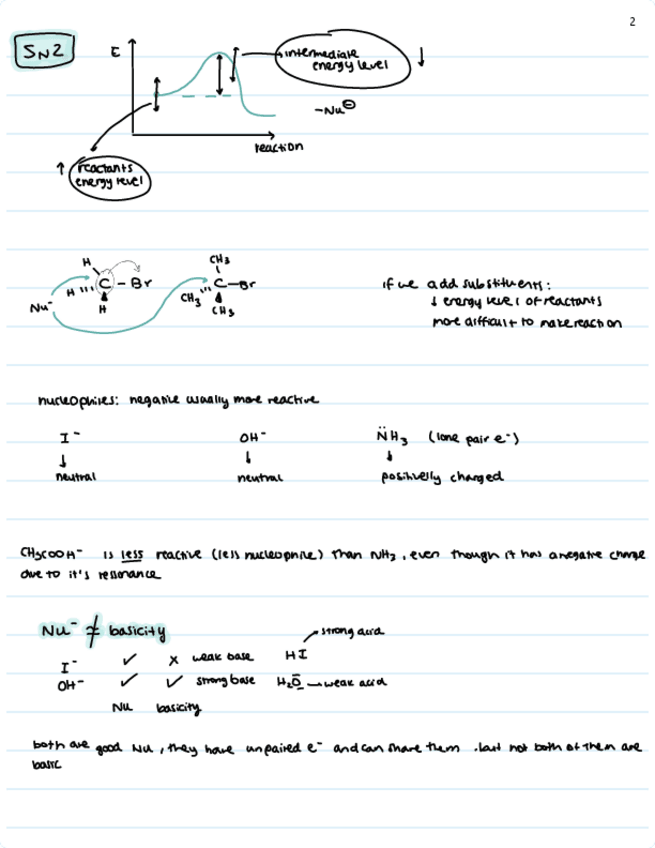 2
SN2
E
intermediate
energy level
↓
-Nu⊖
reaction
↑ reactants
energy level
H
H C - Br
H
Nu⁻
CH3
CH3 C - Br
CH3
if we add substituents:
↓ energy level of reactants
more difficult to make reaction
nucleophiles: negative usually more reactive
I⁻ OH⁻ N̈H3 (lone pair e⁻)
↓ ↓ ↓
neutral neutral positivelly charged
CH3COOH⁻ is less reactive (less nucleophile) than NH3, even though it has a negative charge
due to it's resonance
Nu⁻ ≠ basicity
strong acid
I⁻ ✓ x weak base HI
OH⁻ ✓ ✓ strong base H2O → weak acid
Nu basicity
both are good Nu, they have unpaired e⁻ and can share them. but not both of them are
basic